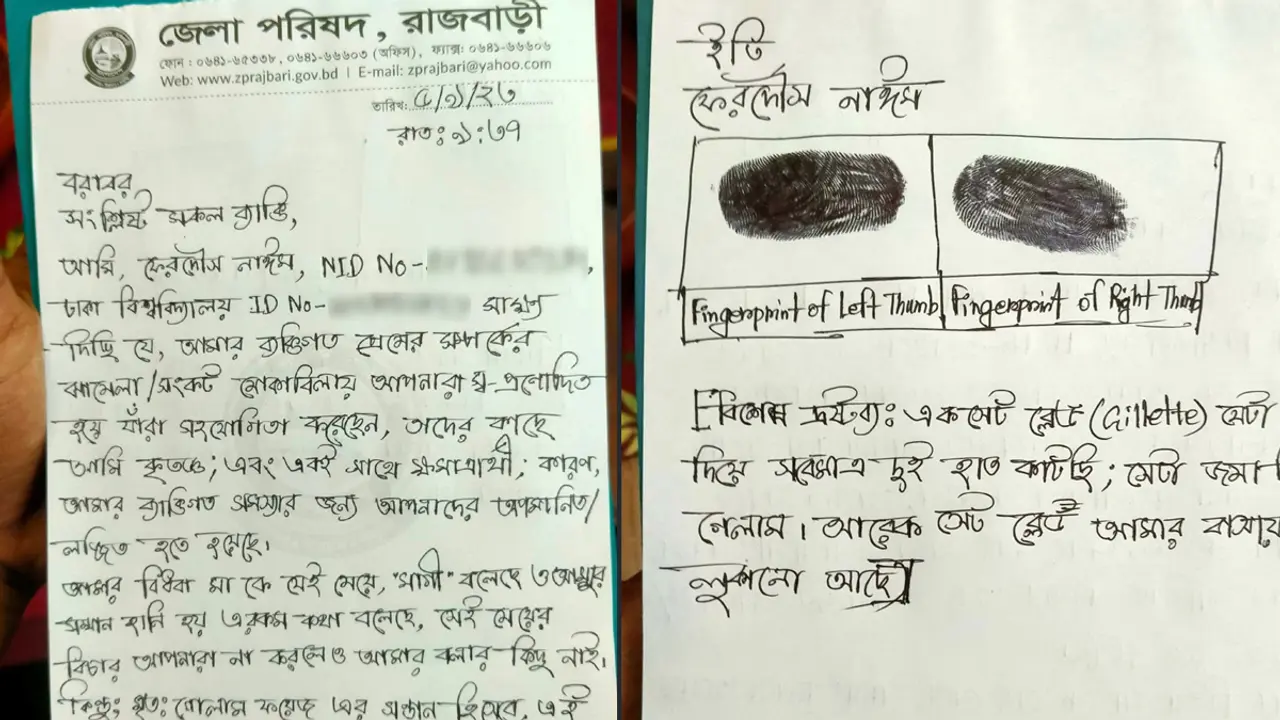 জেলা পরিষদ, রাজবাড়ী
ফোন : ০৬৪১-৬৫৩৩৮, ০৬৪১-৬৬৬০৩ (অফিস), ফ্যাক্স: ০৬৪১-৬৬৬০৬
Web: www.zprajbari.gov.bd | E-mail: zprajbari@yahoo.com
তারিখ: ৫/৯/২৩
রাত: ৯:৩৭
বরাবর
সংশ্লিষ্ট সকল ব্যক্তি,
আমি, ফেরদৌস নাঈম, NID No-
ঢাকা বিশ্ববিদ্যালয় ID No- সাক্ষ্য
দিচ্ছি যে, আমার ব্যক্তিগত প্রেমের সম্পর্কের
ঝামেলা/সংকট মোকাবিলায় আপনারা স্ব-প্রণোদিত
হয়ে যাঁরা সহযোগিতা করেছেন, তাদের কাছে
আমি কৃতজ্ঞ; এবং একই সাথে ক্ষমাপ্রার্থী; কারণ,
আমার ব্যক্তিগত সমস্যার জন্য আপনাদের অপমানিত/
লজ্জিত হতে হয়েছে।
আমার বিধবা মা কে সেই মেয়ে, "মাগী" বলেছে ও আম্মুর
সম্মান হানি হয় এরকম কথা বলেছে, সেই মেয়ের
বিচার আপনারা না করলেও আমার বলার কিছু নাই।
কিন্তু; মৃত: গোলাম ফয়েজ এর সন্তান হিসেবে, এই
ইতি
ফেরদৌস নাঈম
Fingerprint of Left Thumb
Fingerprint of Right Thumb
[বিশেষ দ্রষ্টব্য: এক সেট ব্লেড (Gillette) সেটা
দিয়ে সবেমাত্র দুই হাত কাটছি; সেটা জমা
গেলাম। আরেক সেট ব্লেড আমার বাসায়
লুকানো আছে]